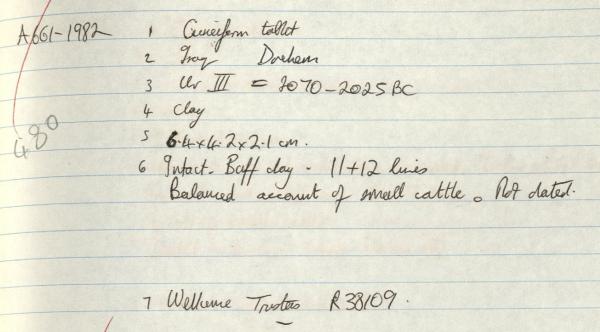 A661-1982 1 Cuneiform tablet
2 Iraq Dreham
3 Ur III = 2070-2025 BC
4 Clay
5 6.4x4.2x2.1 cm.
6 Intact. Buff clay - 11+12 lines
Balanced account of small cattle. Not dated.
480
7 Wellcome Trustees R38109.